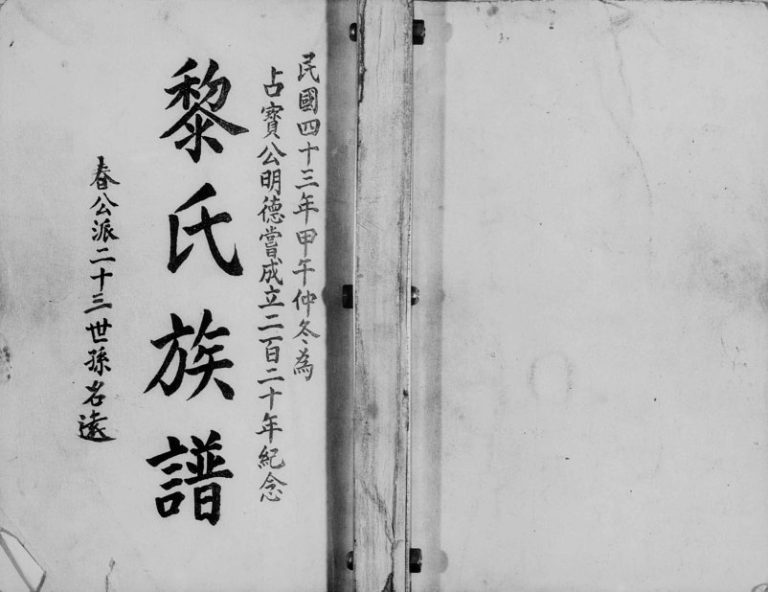 民國四十三年甲午仲冬為
占寳公明德嘗成立二百二十年紀念
黎氏族譜
春公派二十三世孫名遠